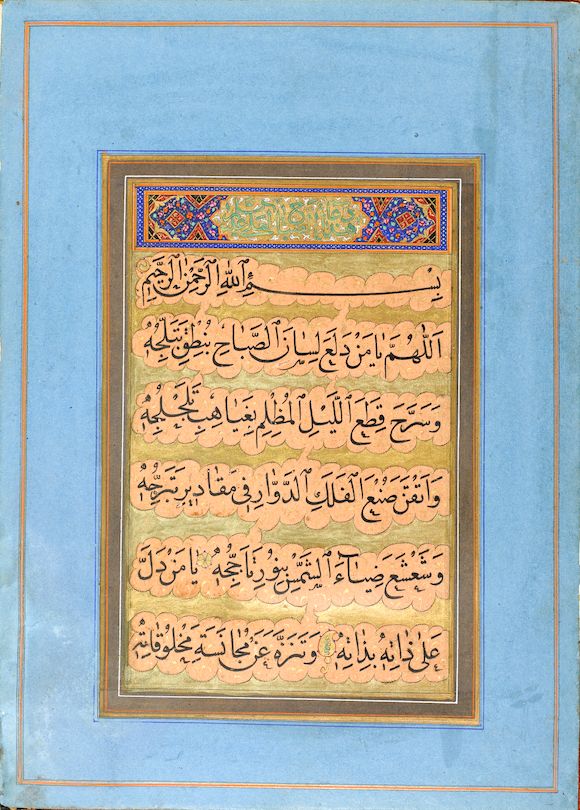 بِسْمِ ٱللهِ ٱلرَّحْمٰنِ ٱلرَّحِيمِ
اَللّٰهُمَّ يا مَنْ دَلَعَ لِسانَ ٱلصَّباحِ بِنُطْقِ تَبَلُّجِهِ
وَسَرَّحَ قِطَعَ ٱللَّيْلِ ٱلْمُظْلِمِ بِغَياهِبِ تَلَجْلُجِهِ
وَاَتْقَنَ صُنْعَ ٱلْفَلَكِ ٱلدَّوّارِ فى مَقاديرِ تَبَرُّجِهِ
وَشَعْشَعَ ضِياءَ ٱلشَّمْسِ بِنُورِ تَاَجُّجِهِ يا مَنْ دَلَّ
عَلى ذاتِهِ بِذاتِهِ وَتَنَزَّهَ عَنْ مُجانَسَةِ مَخْلُوقاتِهِ